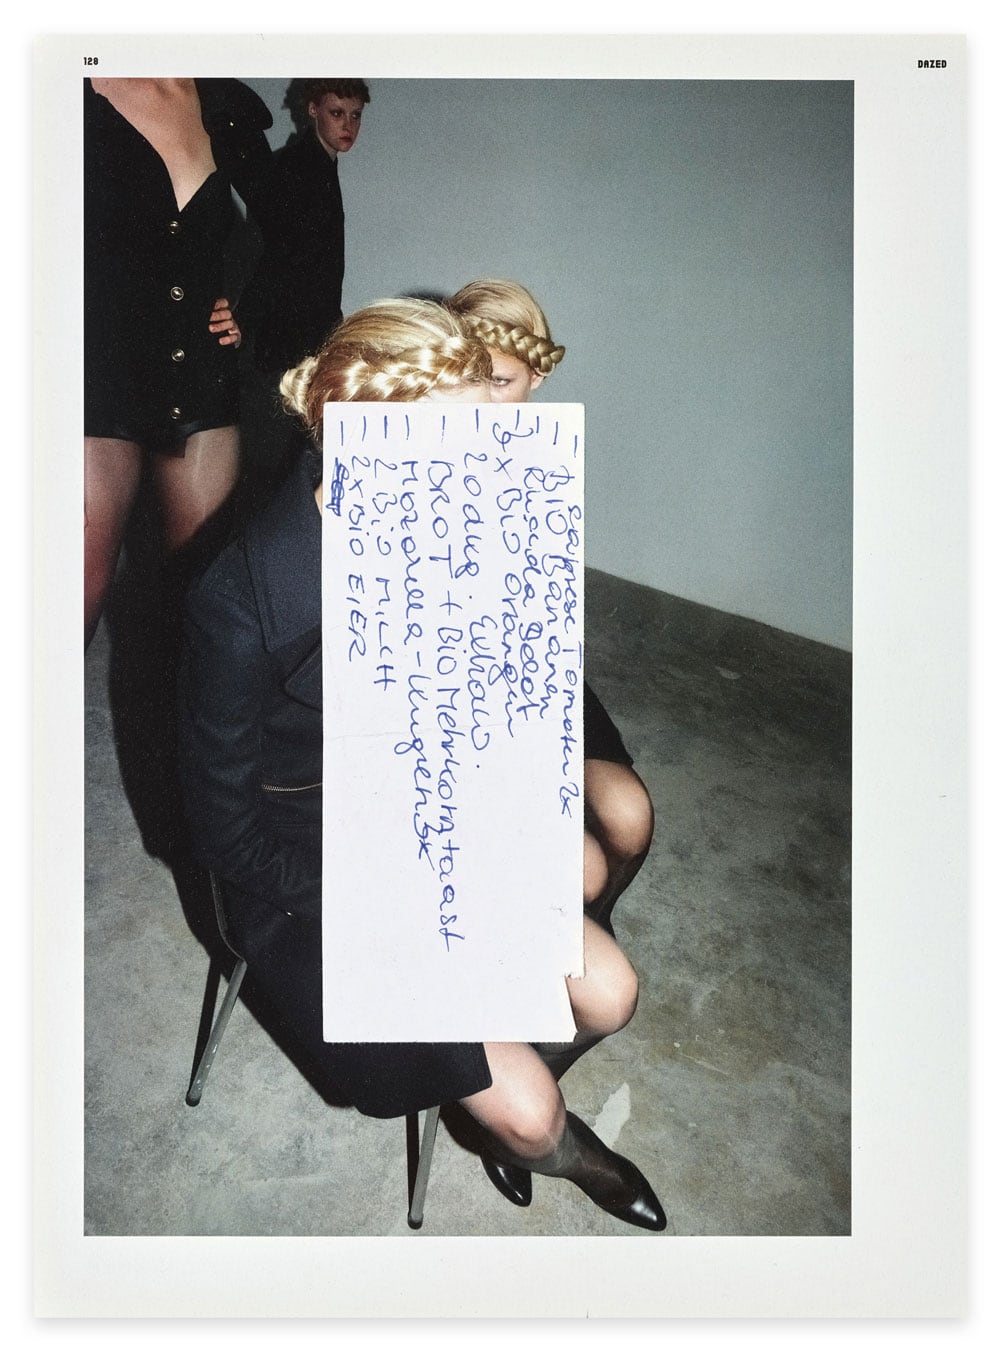 128
DAZED
Tomaten 2x
BIO Bananen
Rucola Salat
3x BIO Orangen
20 dkg. Extraw.
BROT + BIO Mehrkorntoast
Mozarella-Kugeln 3x
2 BiO MILCH
2x BIO EIER